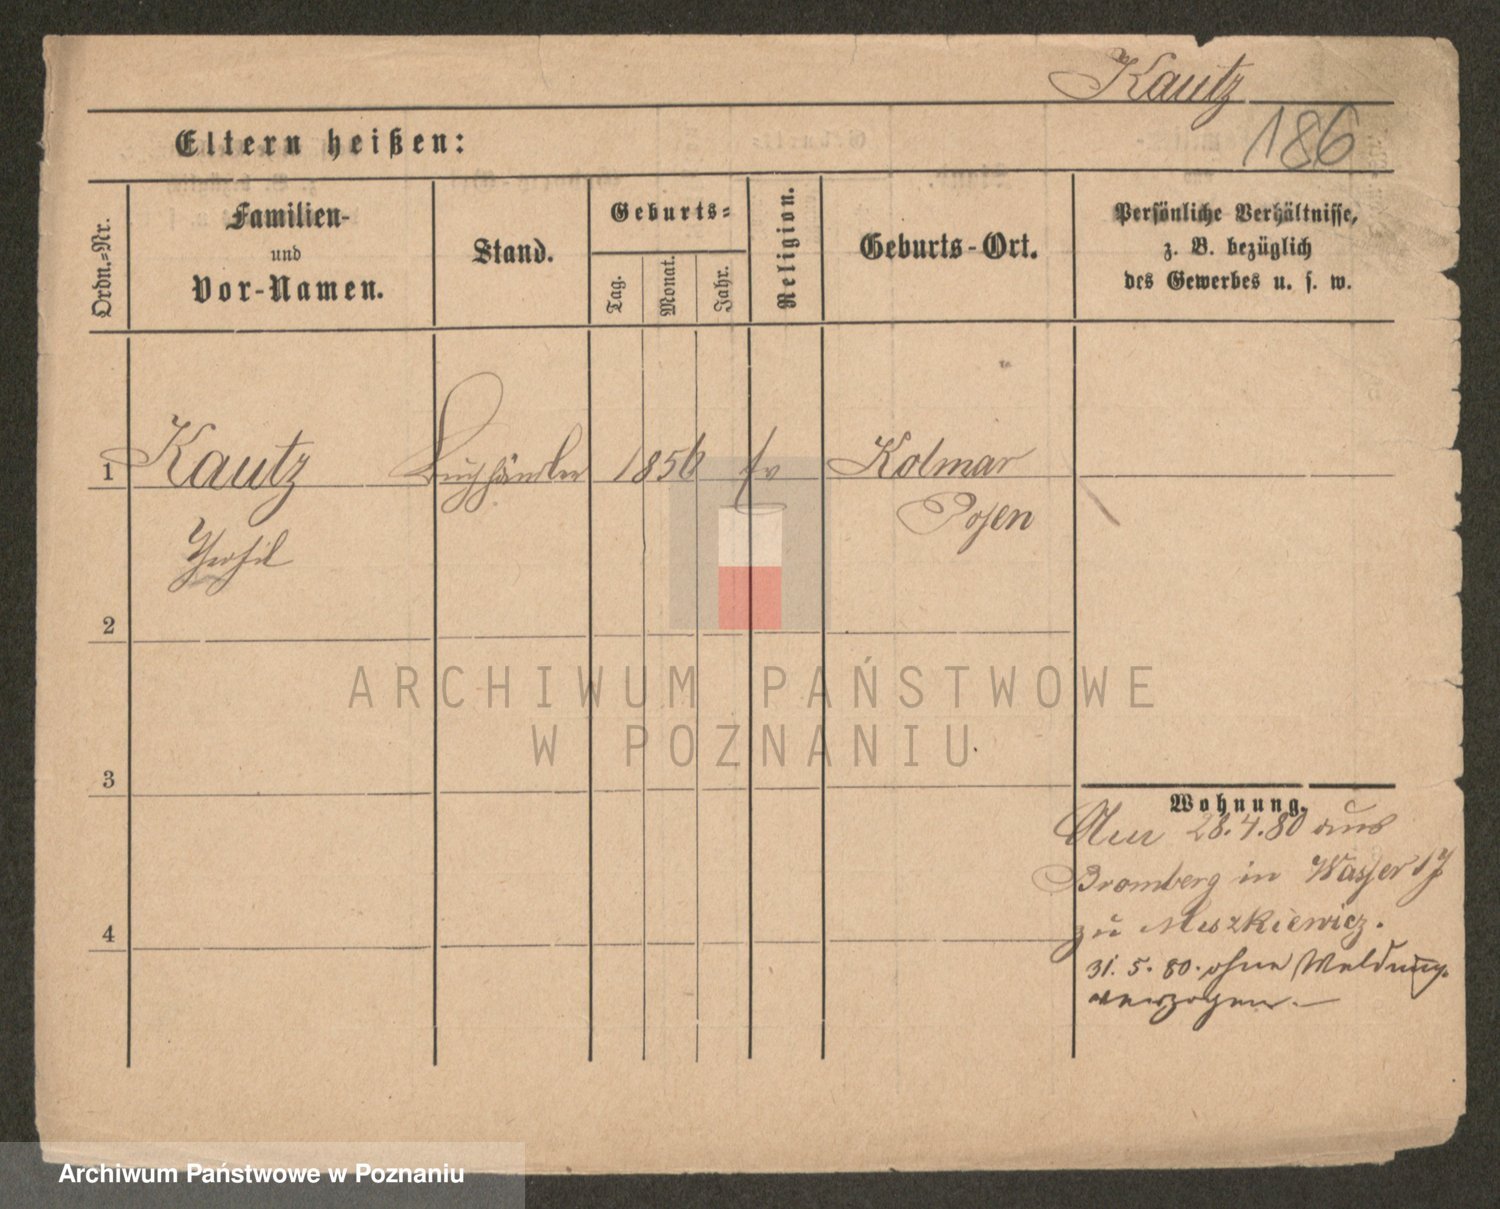 Kautz
186
Eltern heißen:
Ordn.-Nr.
Familien-
und
Vor-Namen.
Stand.
Geburts-
Tag.
Monat.
Jahr.
Religion.
Geburts-Ort.
Persönliche Verhältnisse,
z. B. bezüglich
des Gewerbes u. s. w.
1 Kautz Buchhändler 1856 ev Kolmar
Posen
2
3
4
Wohnung.
28.4.80 aus
Bromberg in Wasser 17
zu Muszkiewicz.
31. 5. 80. ohne Meldung
verzogen.—
ARCHIWUM PAŃSTWOWE
W POZNANIU
Archiwum Państwowe w Poznaniu